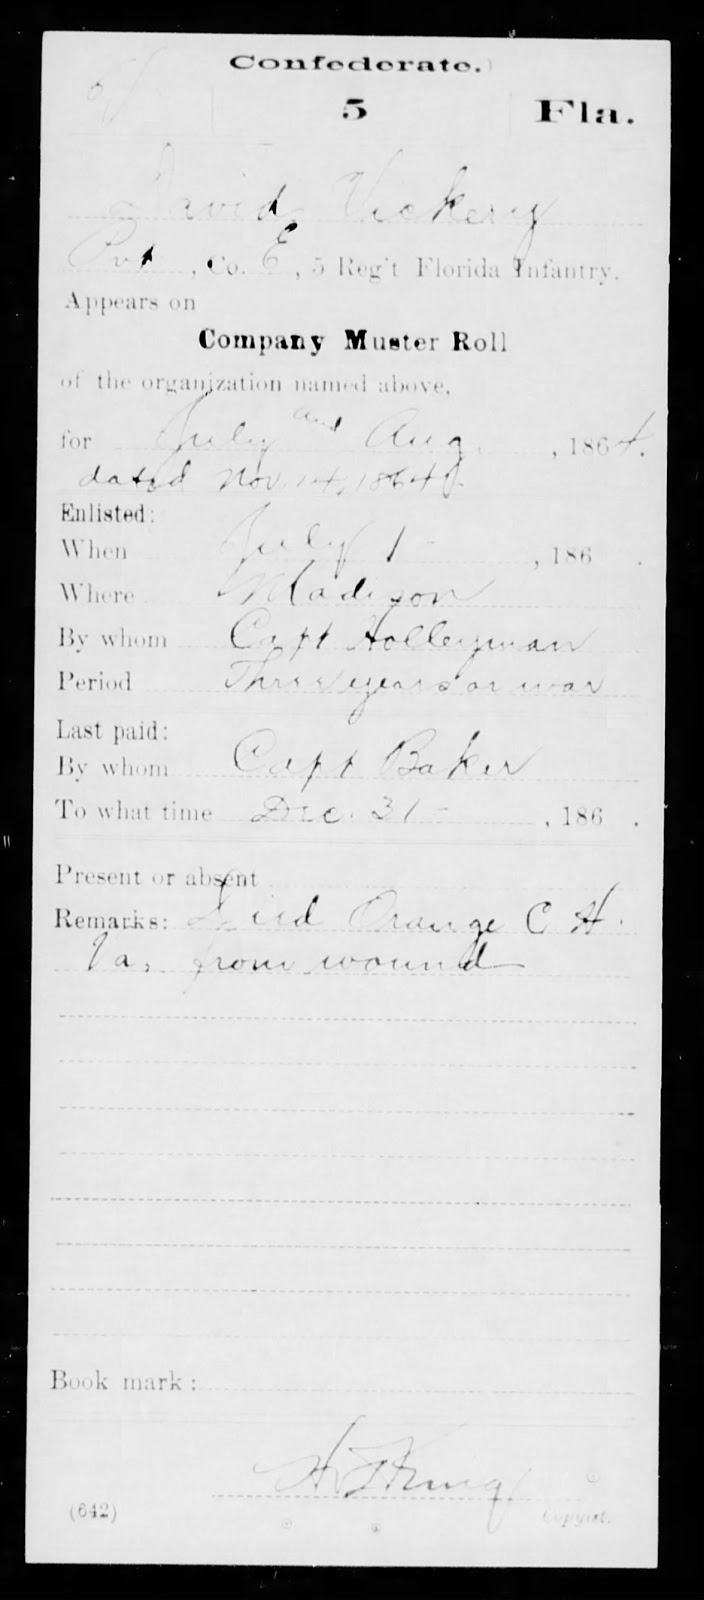 Confederate.
5 Fla.
David Vickery
Pvt, Co. E, 5 Reg't Florida Infantry.
Appears on
Company Muster Roll
of the organization named above,
for July and Aug., 1864.
dated Nov. 14, 1864.
Enlisted:
When July 1 - , 186 .
Where Madison
By whom Capt Holleyman
Period Three years or war
Last paid:
By whom Capt Baker
To what time Dec. 31 - , 186 .
Present or absent
Remarks: Died Orange C H.
Va, from wound
Book mark:
King
(642) Copyist.